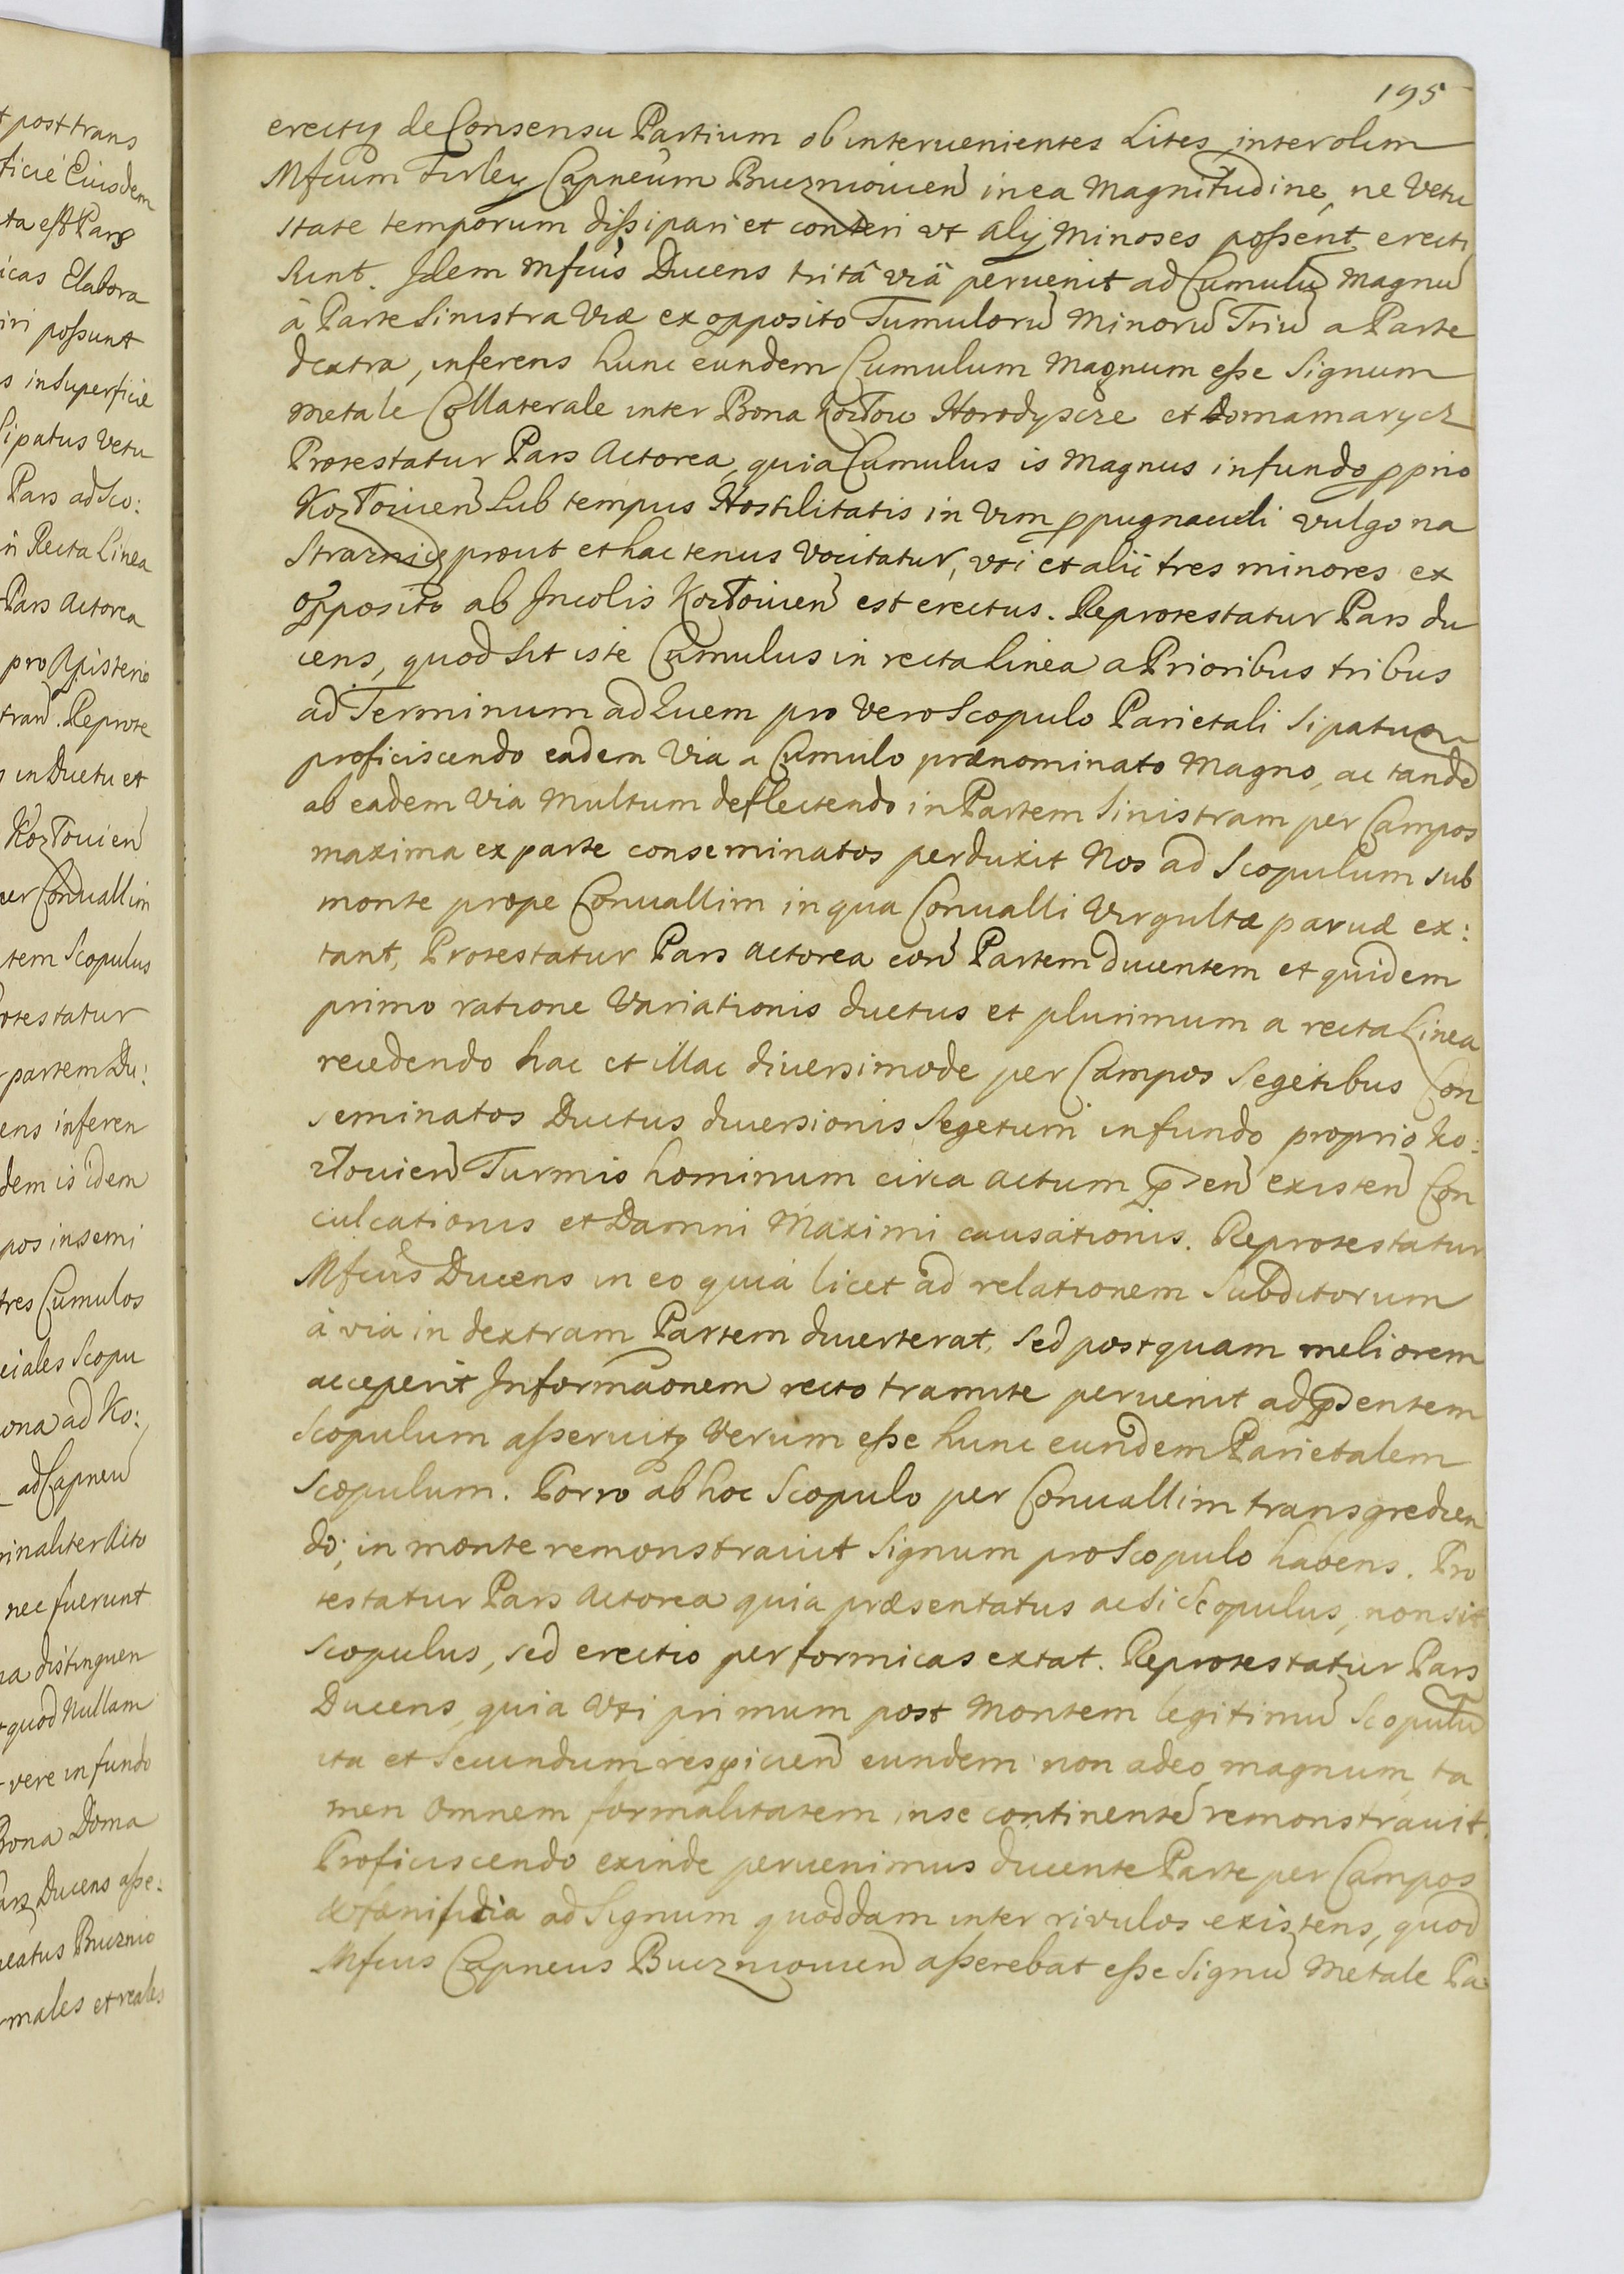 t post trans
ficie Eiusdem
ta est Pars
icas Elabora
iri possunt
s in Superficie
Sipatus Vetu
Pars ad Sco:
in Recta Linea
Pars Actorea
pro Asisterio
tran̄. Reprote
s in Ductu et
Koztouien̄
per Conuallim
tem Scopulus
otestatur
partem Du:
ens inferen
dem is idem
pos insemi
tres Cumulos
ciales Scopu
ona ad Ko:
ad Capneū
rinaliter Acto
nec fuerunt
na distinguen
t quod Nullam
t vere in fundo
Bona Doma
Pars Ducens asse:
neatus Bucznio
rmales et reales
195
erectiq de Consensu Partium ob interuenientes Lites inter olim
Mfcum Firley Capneum Buczniouien̄ in ea Magnitudine, ne Vetu
state temporum dissipari et conteri vt alij Minores possent erecti
Sunt. Idem Mfcus Ducens tritâ viâ peruenit ad Cumulū Magnū
à Parte Sinistra Viæ ex opposito Tumulorū Minorū Triū a Parte
dextra, inferens hunc eundem Cumulum Magnum esse Signum
metale Collaterale inter Bona Koztow Horodyscze et Domamorycz
Protestatur Pars Actorea, quia Cumulus is Magnus in fundo pprio
Koztouien̄ Sub tempus Hostilitatis in Vim ppugnaculi vulgo na
Straznicę prout et hactenus Vocitatur, vti et alii tres minores ex
opposito ab Incolis Koztouien̄ est erectus. Reprotestatur Pars du
cens, quod sit iste Cumulus in recta Linea a Prioribus tribus
ad Terminum ad Quem pro Vero Scopulo Parietali Sipatus
proficiscendo eadem Via a Cumulo prænominato Magno, ac tandē
ab eadem Via Multum deflectendo in Partem Sinistram per Campos
maxima ex parte conseminatos perduxit Nos ad Scopulum sub
monte prope Conuallim in qua Conualli Virgultæ paruæ ex:
tant, Protestatur Pars Actorea con̄ Partem ducentem et quidem
primo ratione Variationis ductus et plurimum a recta Linea
recedendo hac et illac diuersimode per Campos Segetibus Con
seminatos Ductus diuersionis Segetum in fundo proprio Ko:
ztouien̄ Turmis hominum circa Actum p̄en̄ existen̄ Con
culcationis et Damni Maximi causationis. Reprotestatur
Mfcus Ducens in eo quia licet ad relationem Subditorum
à via in dextram Partem diuerterat, sed postquam meliorem
acceperit Informaōnem recto tramite peruenit ad p̄sentem
Scopulum asseruitq Verum esse hunc eundem Parietalem
Scopulum. Porro ab hoc Scopulo per Conuallim transgredien
do, in monte remonstrauit Signum pro Scopulo habens. Pro
testatur Pars Actorea quia præsentatus acsi Scopulus, non sit
Scopulus, sed erectio per formicas extat. Reprotestatur Pars
Ducens, quia Vti primum post Montem legitimū Scopulū
ita et Secundum respicien̄ eundem non adeo magnum ta
men Omnem formalitatem in se continentē remonstrauit.
Proficiscendo exinde peruenimus ducente Parte per Campos
& fænisidia ad Signum quoddam inter rivulos existens, quod
Mfcus Capneus Buczniouien̄ asserebat esse Signū Metale Pa